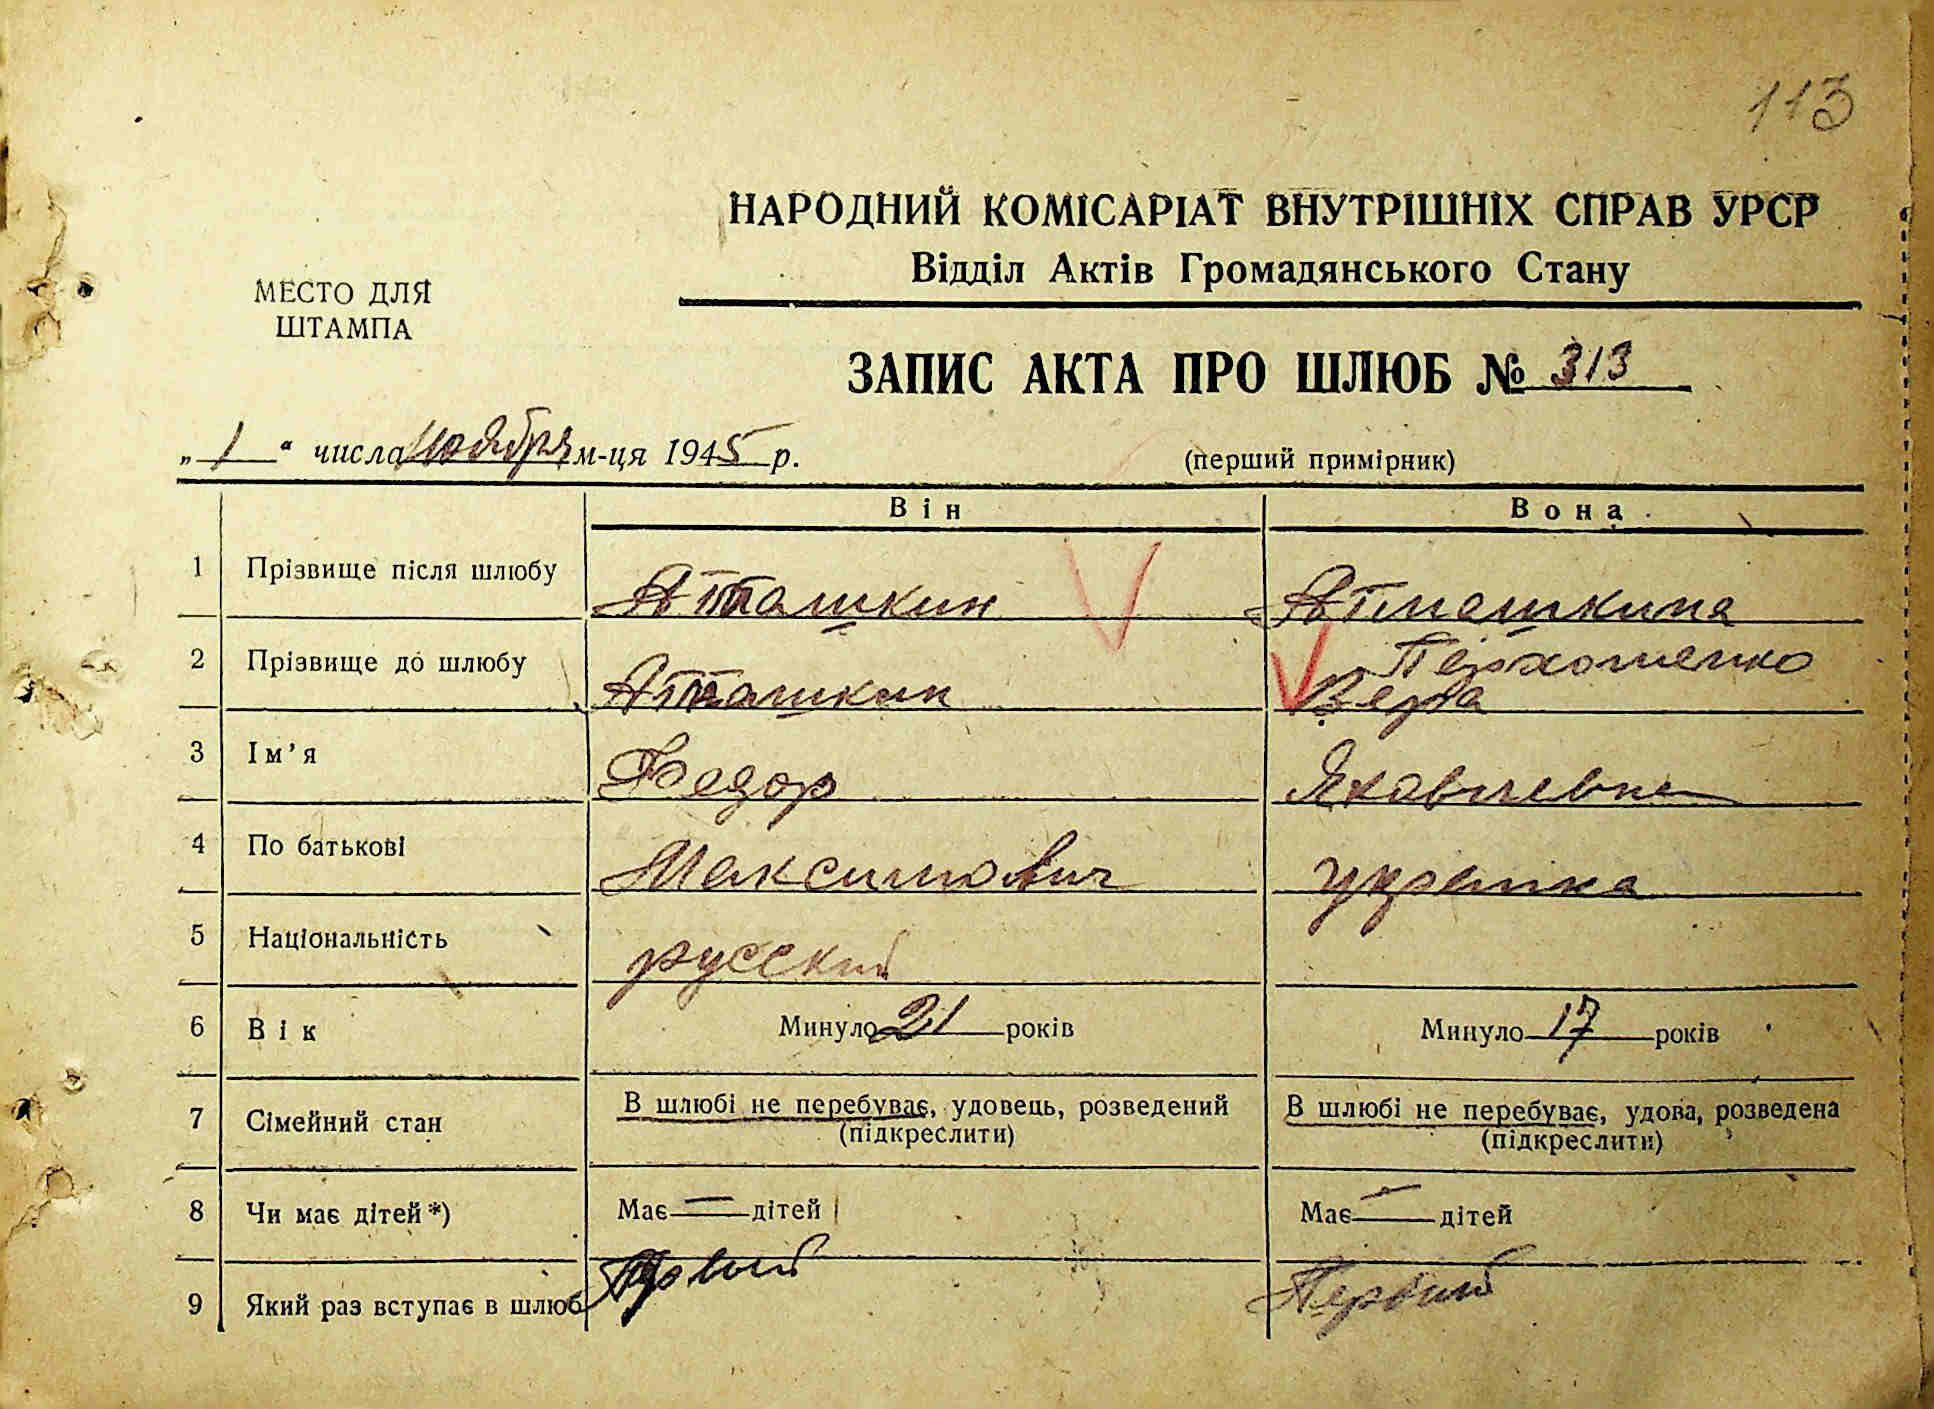 113
НАРОДНИЙ КОМІСАРІАТ ВНУТРІШНІХ СПРАВ УРСР
Відділ Актів Громадянського Стану
МЕСТО ДЛЯ
ШТАМПА
ЗАПИС АКТА ПРО ШЛЮБ № 313
„ 1 “ числа ноября м-ця 1945 р.
(перший примірник)
Він Вона
1 Прізвище після шлюбу Атмашкин Атмашкина
2 Прізвище до шлюбу Атмашкин Вера
3 Ім'я Федор Яковлевна
4 По батькові Максимович украинка
5 Національність русский
6 Вік Минуло 21 років Минуло 17 років
7 Сімейний стан В шлюбі не перебуває, удовець, розведений В шлюбі не перебуває, удова, розведена
(підкреслити) (підкреслити)
8 Чи має дітей*) Має — дітей Має — дітей
9 Який раз вступає в шлюб Первый Первый